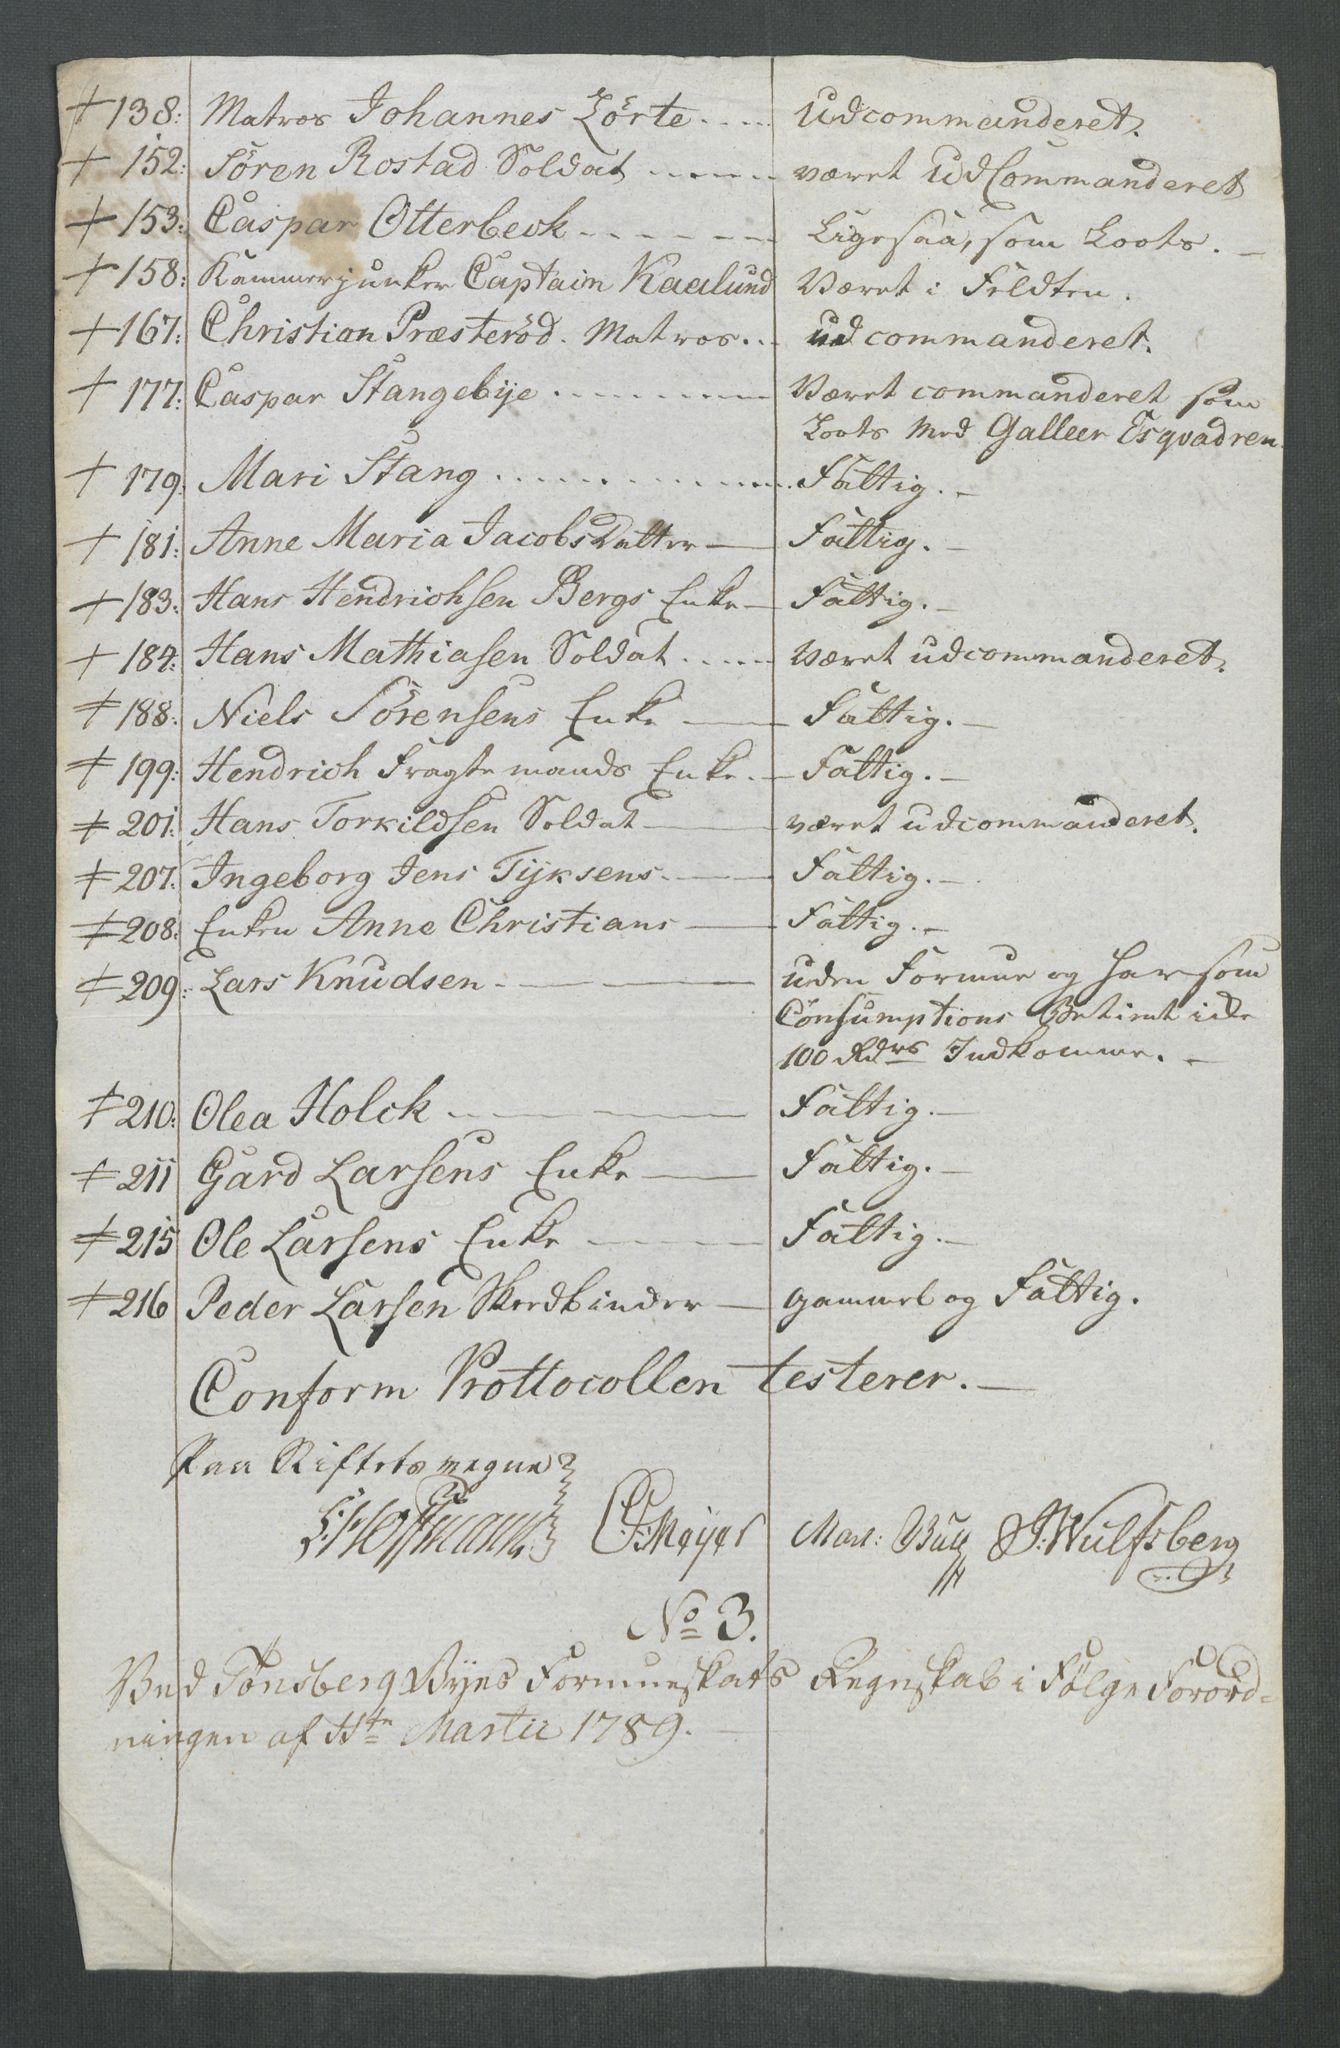 + 138: Matros Johannes Zörte..... Udcommanderet.
+ 152: Sören Rostad Soldat ........ været UdCommanderet
+ 153: Caspar Otterbeck - - - - - - Ligesaa, som Loots. -
+ 158: Kammerjunker Captain Kaalund Været i Feldten.
+ 167: Christian Præsteröd. Matros... udcommanderet.
+ 177: Caspar Stangebÿe ............ Været commanderet som
Loots med Galleer Esqvadren
+ 179. Mari Stang .............. Fattig. -
+ 181: Anne Maria Jacobsdatter — Fattig. -
+ 183: Hans Hendrichsen Bergs Enke — Fattig. -
+ 184: Hans Mathiasen Soldat ..... været udcommanderet.
+ 188: Niels Sörensens Enke — Fattig. -
+ 199: Hendrich Fragtemands Enke. — Fattig. -
+ 201: Hans Torkildsen Soldat — været udcommanderet.
+ 207: Ingeborg Jens Tÿksens. — Fattig. -
+ 208: Enken Anne Christians — Fattig. -
+ 209: Lars Knudsen - — uden Formue og har som
Consumptions Betient icke
100 Rdrs Indkomme. -
+ 210: Olea Holck - — Fattig. -
+ 211 Gard Larsens Enke — Fattig. -
+ 215 Ole Larsens Enke — Fattig. -
+ 216 Peder Larsen Skredbinder — gammel og Fattig.
Conform Prottocollen testerer. -
Paa Riftets vegne
Hoffmann C: F: Meyer Mart: Bugg J: Wulfsberg
No 3.
Ved Tönsberg Byes Formueskats Regnskab i Følge Forord-
ningen af 11te Martii 1789. -